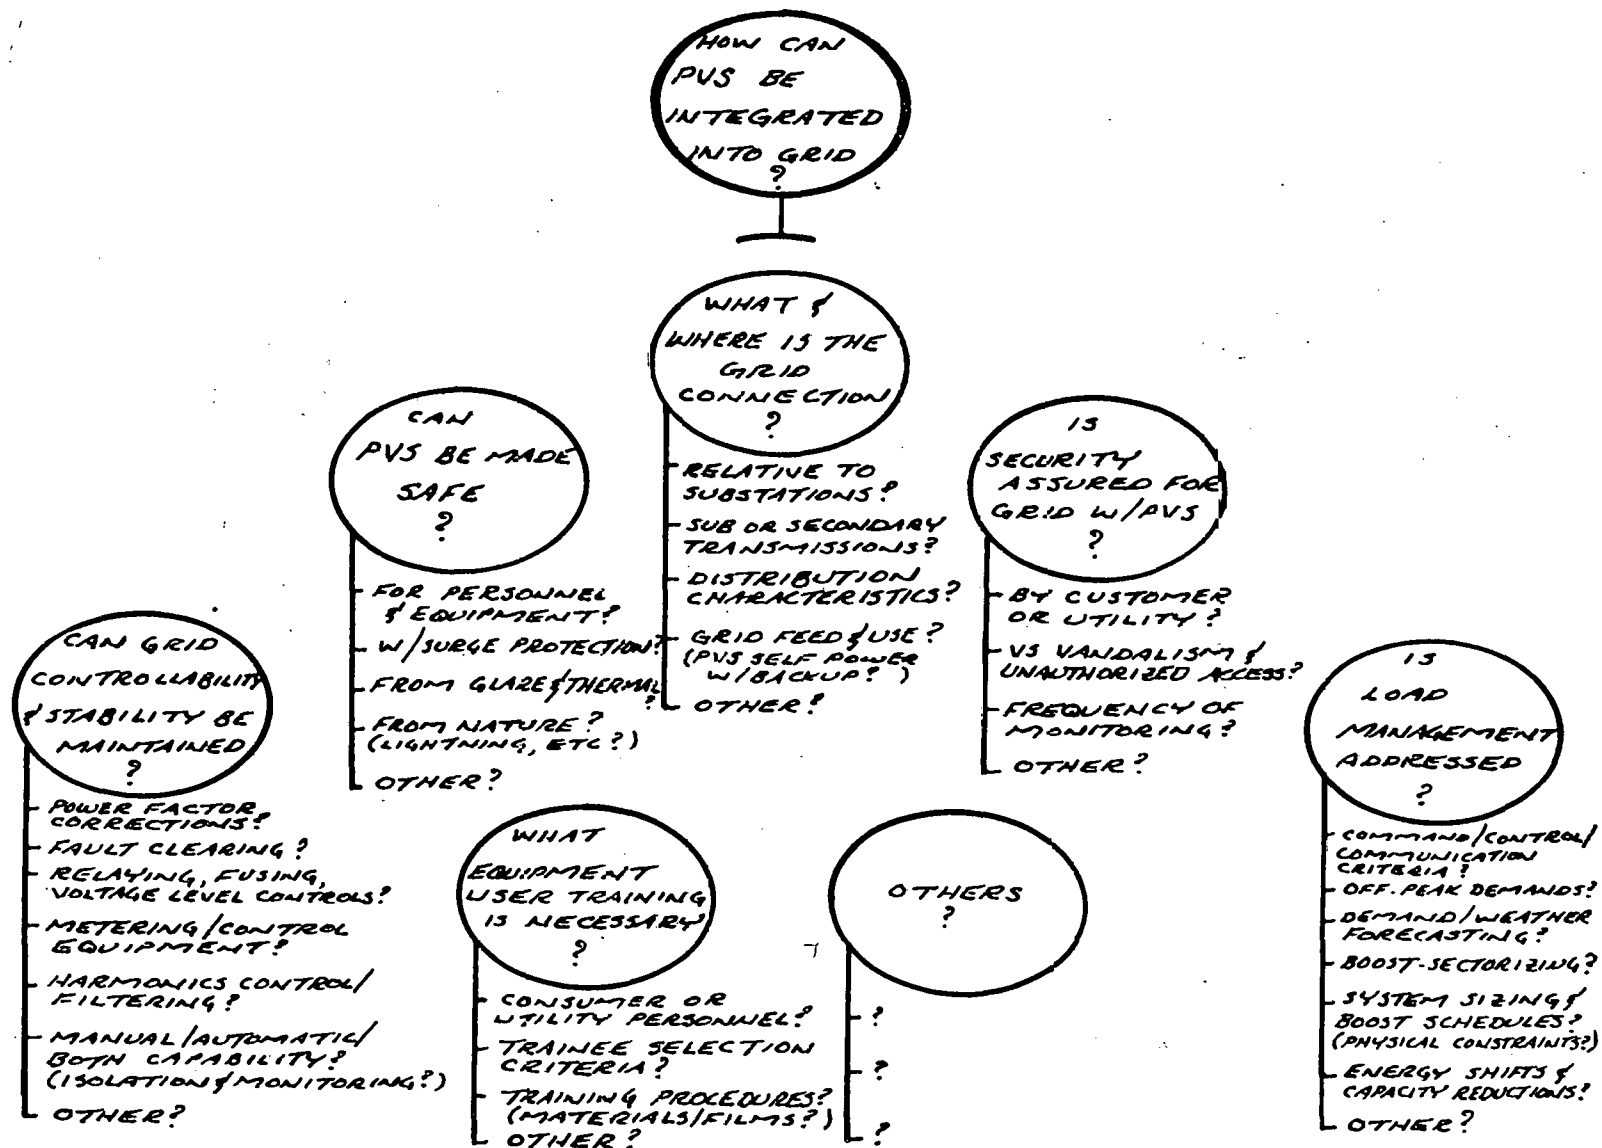 HOW CAN
PVS BE
INTEGRATED
INTO GRID
?
WHAT &
WHERE IS THE
GRID
CONNECTION
?
RELATIVE TO
SUBSTATIONS?
SUB OR SECONDARY
TRANSMISSIONS?
DISTRIBUTION
CHARACTERISTICS?
GRID FEED & USE?
(PVS SELF POWER
W/BACKUP?)
OTHER?
CAN
PVS BE MADE
SAFE
?
FOR PERSONNEL
& EQUIPMENT?
W/SURGE PROTECTION?
FROM GLAZE & THERMAL
?
FROM NATURE?
(LIGHTNING, ETC?)
OTHER?
IS
SECURITY
ASSURED FOR
GRID W/PVS
?
BY CUSTOMER
OR UTILITY?
VS VANDALISM &
UNAUTHORIZED ACCESS?
FREQUENCY OF
MONITORING?
OTHER?
CAN GRID
CONTROLLABILITY
& STABILITY BE
MAINTAINED
?
POWER FACTOR
CORRECTIONS?
FAULT CLEARING?
RELAYING, FUSING,
VOLTAGE LEVEL CONTROLS?
METERING/CONTROL
EQUIPMENT?
HARMONICS CONTROL/
FILTERING?
MANUAL/AUTOMATIC/
BOTH CAPABILITY?
(ISOLATION & MONITORING?)
OTHER?
WHAT
EQUIPMENT
USER TRAINING
IS NECESSARY
?
CONSUMER OR
UTILITY PERSONNEL?
TRAINEE SELECTION
CRITERIA?
TRAINING PROCEDURES?
(MATERIALS/FILMS?)
OTHER?
OTHERS
?
?
?
?
IS
LOAD
MANAGEMENT
ADDRESSED
?
COMMAND/CONTROL/
COMMUNICATION
CRITERIA?
OFF-PEAK DEMANDS?
DEMAND/WEATHER
FORECASTING?
BOOST-SECTORIZING?
SYSTEM SIZING &
BOOST SCHEDULES?
(PHYSICAL CONSTRAINTS?)
ENERGY SHIFTS &
CAPACITY REDUCTIONS?
OTHER?